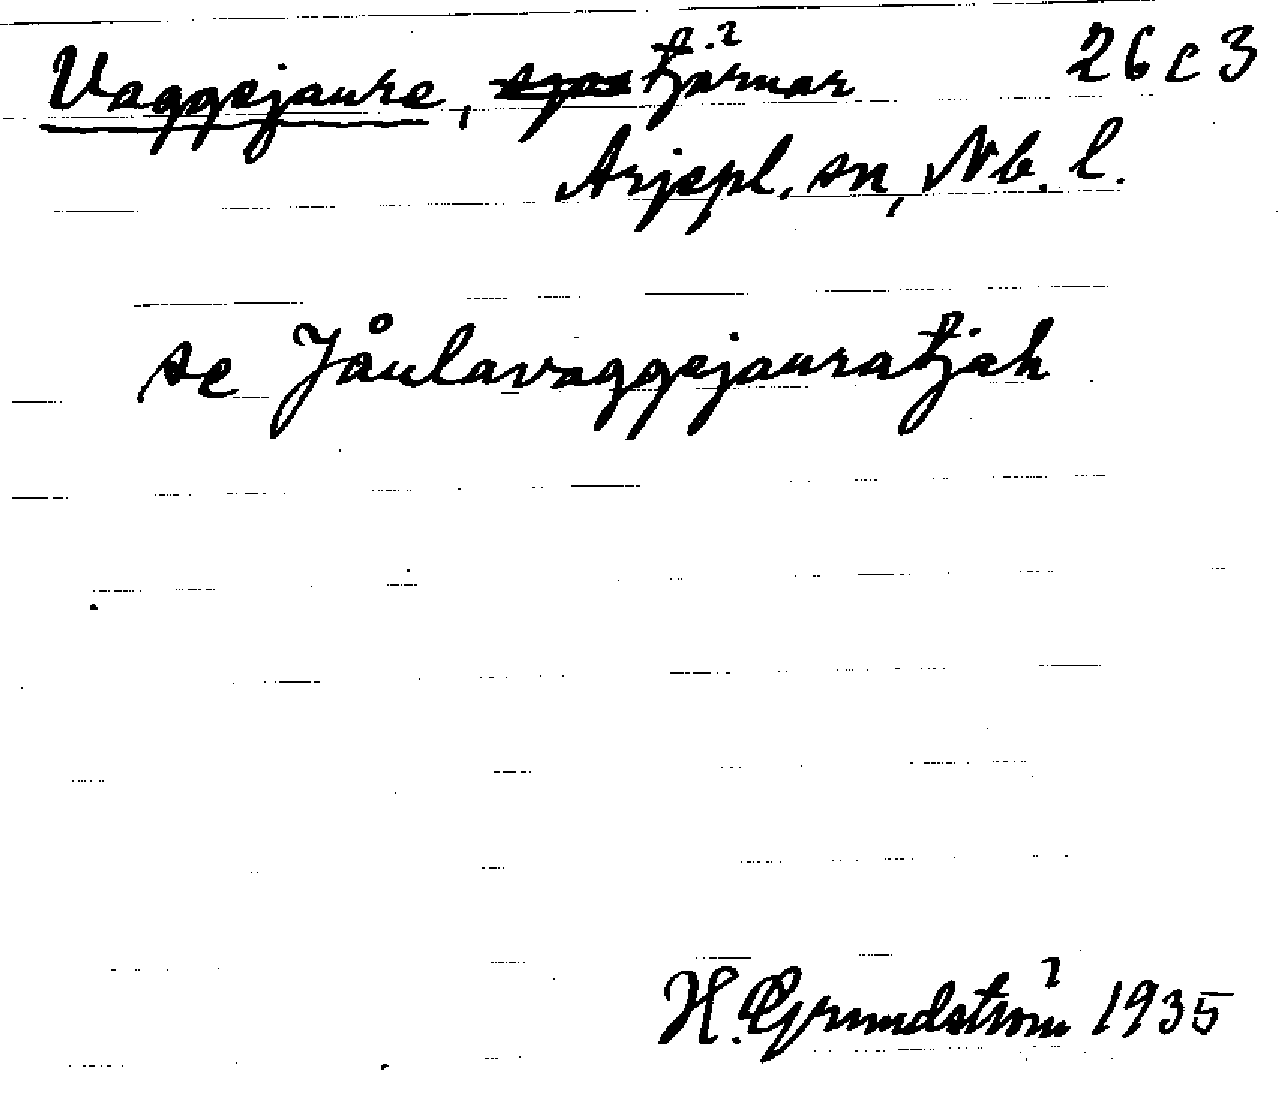 Vaggejaure, tjärnar 26 c 3
Arjepl. sn, Nb. l.
se Jåulavaggejauratjah
H. Grundström 1935